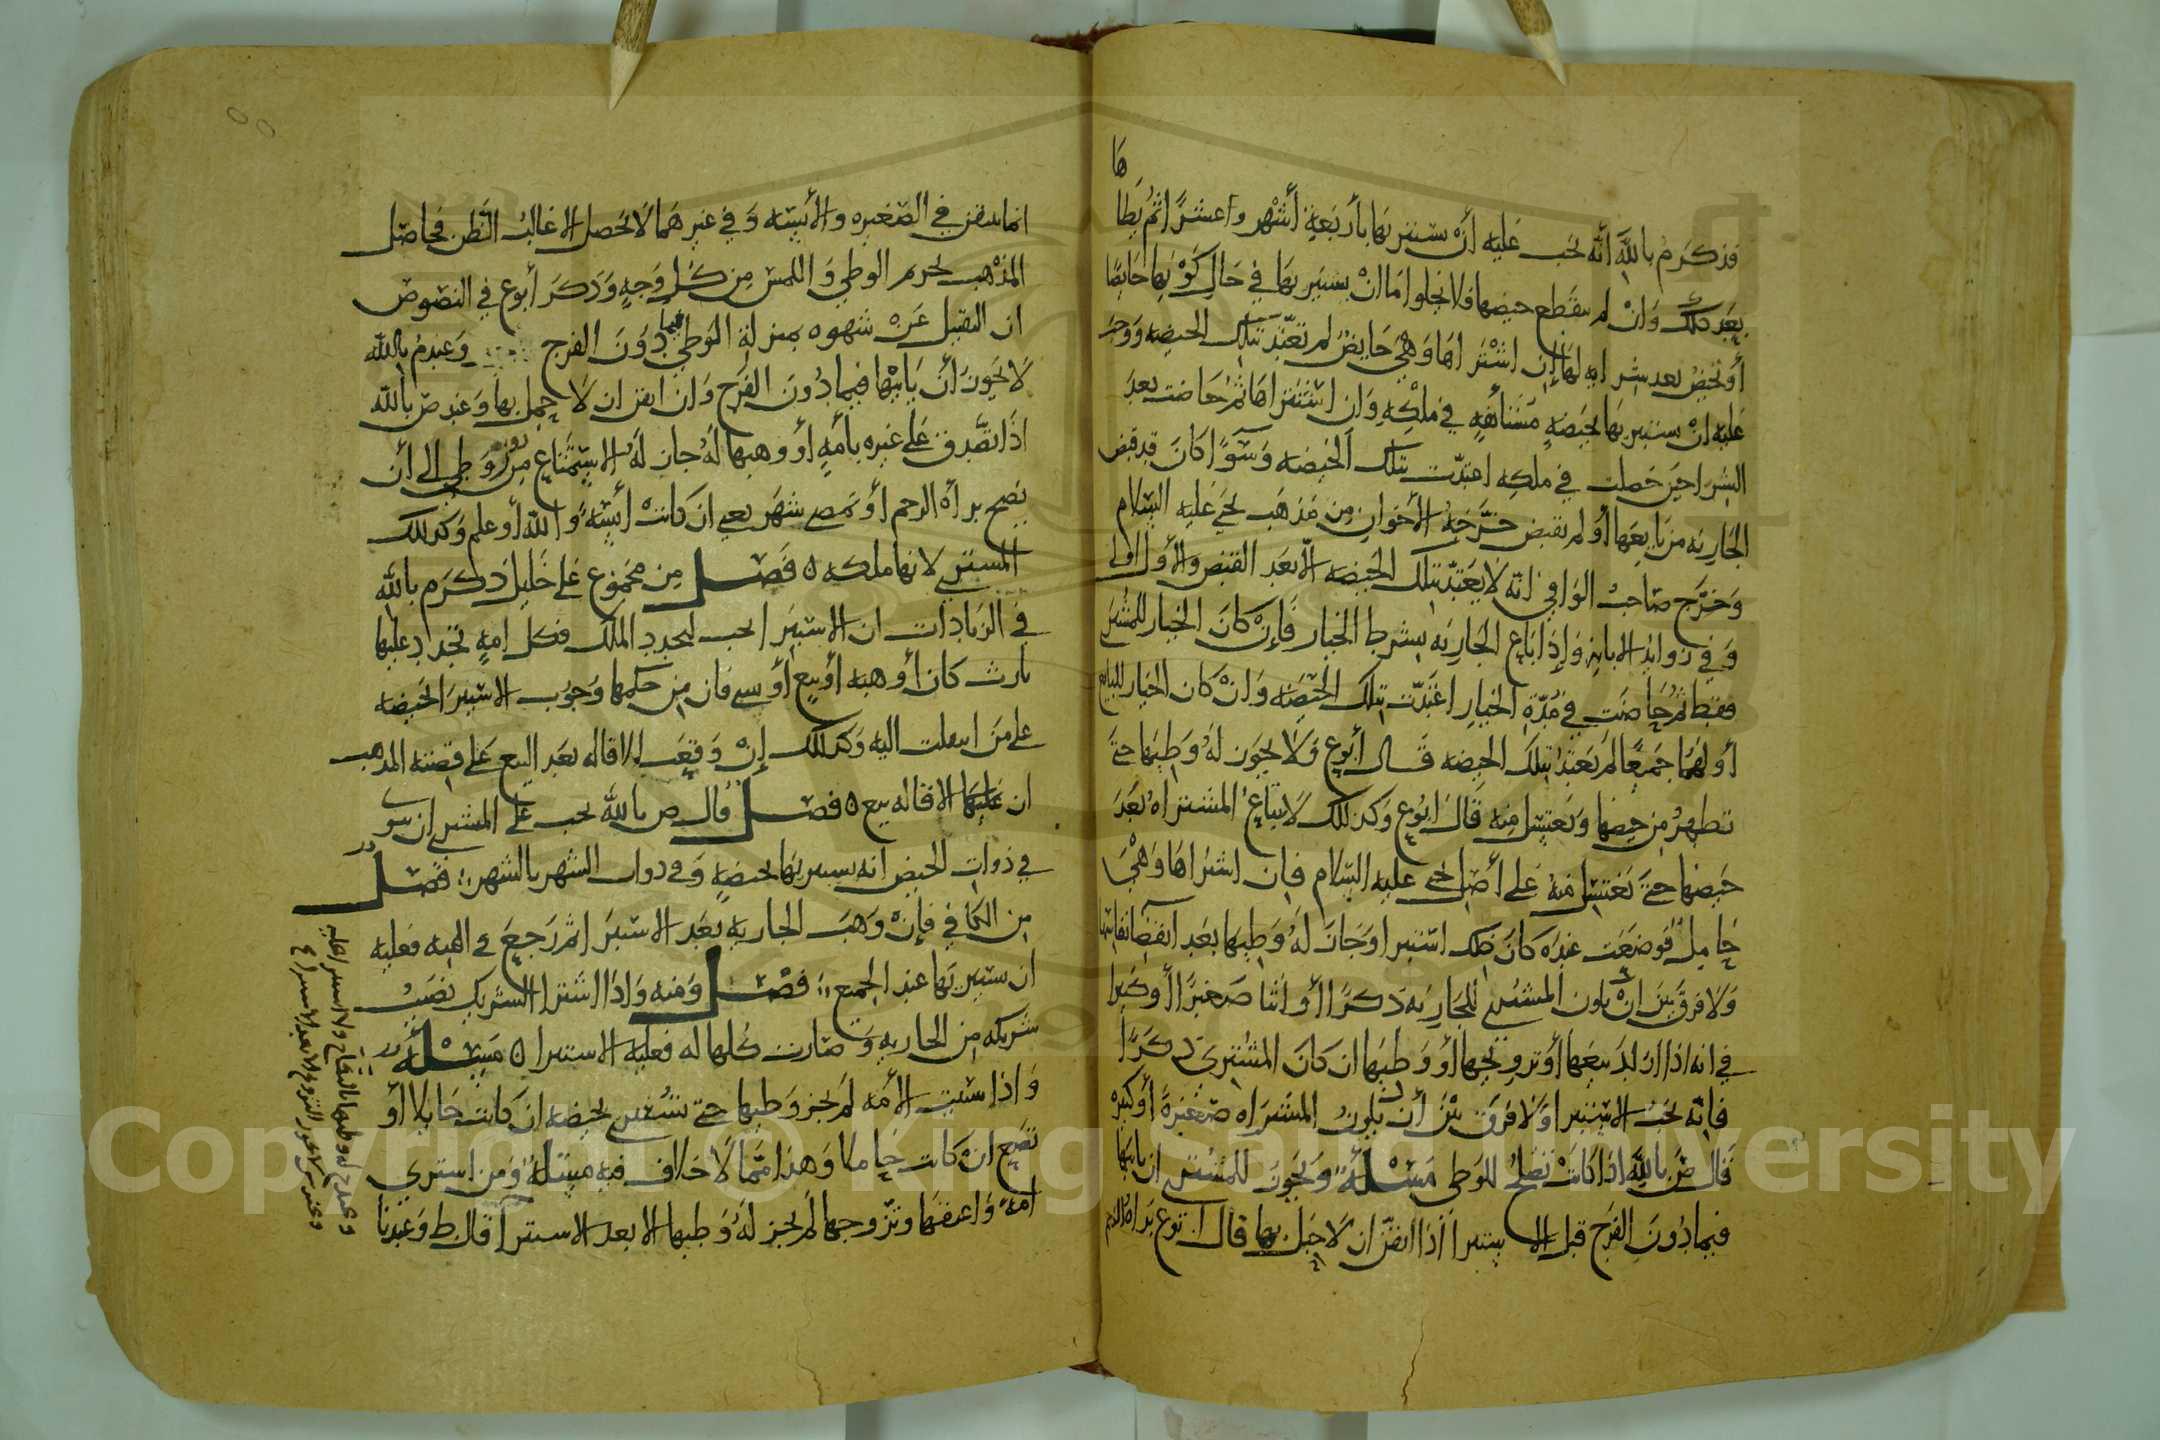 فذكر م بالله أنه يجب عليه أن يستبرئها بأربعة أشهر وعشرا ثم يطا
ها
بعد ذلك وان لم ينقطع حيضها فلا تخلوا اما ان يستبريها في حال كونها حايضا
أو تحيض بعد شرايه لها إن اشتراها وهي حايض لم تعتد بتلك الحيضه ووجب
عليه ان يستبريها بحيضة مستأنفة في ملكه وان اشتراها ثم حاضت بعد
الشرا حين حصلت في ملكه اعتدت بتلك الحيضه وسوا كان قد قبض
الجاريه من بايعها أو لم يقبض خرجه الأخوان من مذهب يحيى عليه السلام
وخرج صاحب الوافي انه لا يعتد بتلك الحيضه الا بعد القبض والأول اولى
وفي زوايد الابانه وإذا باع الجاريه بشرط الخيار فإن كان الخيار للمشتري
فقط ثم حاضت في مدة الخيار اعتدت بتلك الحيضه وان كان الخيار للبايع
أو لهما جميعا لم تعتد بتلك الحيضه قال أبوع ولا يجوز له وطيها حتى
تطهر من حيضها وتغتسل منه قال ابوع وكذلك لا تباع المشتراه بعد
حيضها حتى تغتسل منه على أصل يحيى عليه السلام فان اشتراها وهي
حامل فوضعت عنده كان ذلك استبرا وجاز له وطيها بعد انقضا نفاسها
ولا فرق بين ان يكون المشتري للجاريه ذكرا أو انثا صغيرا أو كبيرا
في انه اذا اراد بيعها أو تزويجها أو وطيها ان كان المشتري ذكرا
فانه يجب الاستبرا ولا فرق بين أن تكون المشتراه صغيرة أو كبيره
قال ض بالله اذا كانت تصلح للوطي مسئلة ويجوز للمشتري ان ياتيها
فيما دون الفرج قبل الاستبرا اذا امن ان لا حبل بها قال ابوع براة الرحم
انما تيقن في الصغيره والأيسه وفي غيرهما لا يحصل الا غالب الظن فحاصل
المذهب تحريم الوطي واللمس من كل وجه وذكر أبوع في النصوص
ان التقبيل عن شهوه بمنزلة الوطي فيما دون الفرج وعند م بالله
لا يجوز أن يأتيها فيما دون الفرج وان امن ان لا حمل بها وعند ص بالله
اذا تصدق على غيره بأمة أو وهبها له جاز له الاستمتاع من دون وطي إلى أن
يصح براة الرحم أو تمضي شهر يعني ان كانت أيسه والله أعلم وكذلك
المشتري لانها ملكه ه فصل من مجموع علي خليل ذكر م بالله
في الزيادات ان الاستبرا يجب لتجدد الملك فكل امة تجدد عليها
بارث كان أو هبه أو بيع أو سبي فان من حكمها وجوب الاستبرا لحيضه
على من انتقلت اليه وكذلك إن وقعت الاقاله بعد البيع على قضية المذهب
ان الاقاله بيع ه فصل قال ص بالله يجب على المشتري ان ينوي
في ذوات الحيض انه يستبريها بحيضة وفي ذوات الشهر بالشهر فصل
من الكافي فإن وهب الجاريه بعد الاستبرا ثم رجع في الهبه فعليه
ان يستبريها عند الجميع فصل ومنه واذا اشترا الشريك نصيب
شريكه من الجاريه وصارت كلها له فعليه الاستبرا ه مسئلة
واذا سبيت الأمه لم يجز وطيها حتى تستبري بحيضه ان كانت حايلا أو
تضع ان كانت حاملا وهذا مما لا خلاف فيه مسئلة ومن اشتري
امة واعتقها وتزوجها لم يجز له وطيها الا بعد الاستبرا قال ط وعندنا